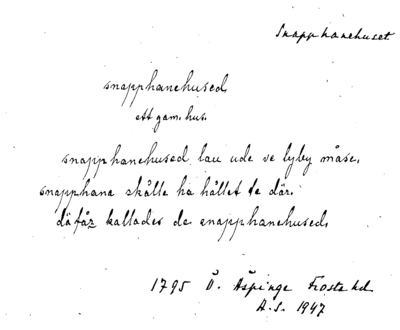 Snapphanehuset
snapphanehused.
ett gam. hus.
snapphanehused lau ude ve lyby måse.
snapphana skålle ha hållet te där.
däfår kallades de snapphanehused.
1795 Ö. Äspinge Frosta hd
A.S. 1947